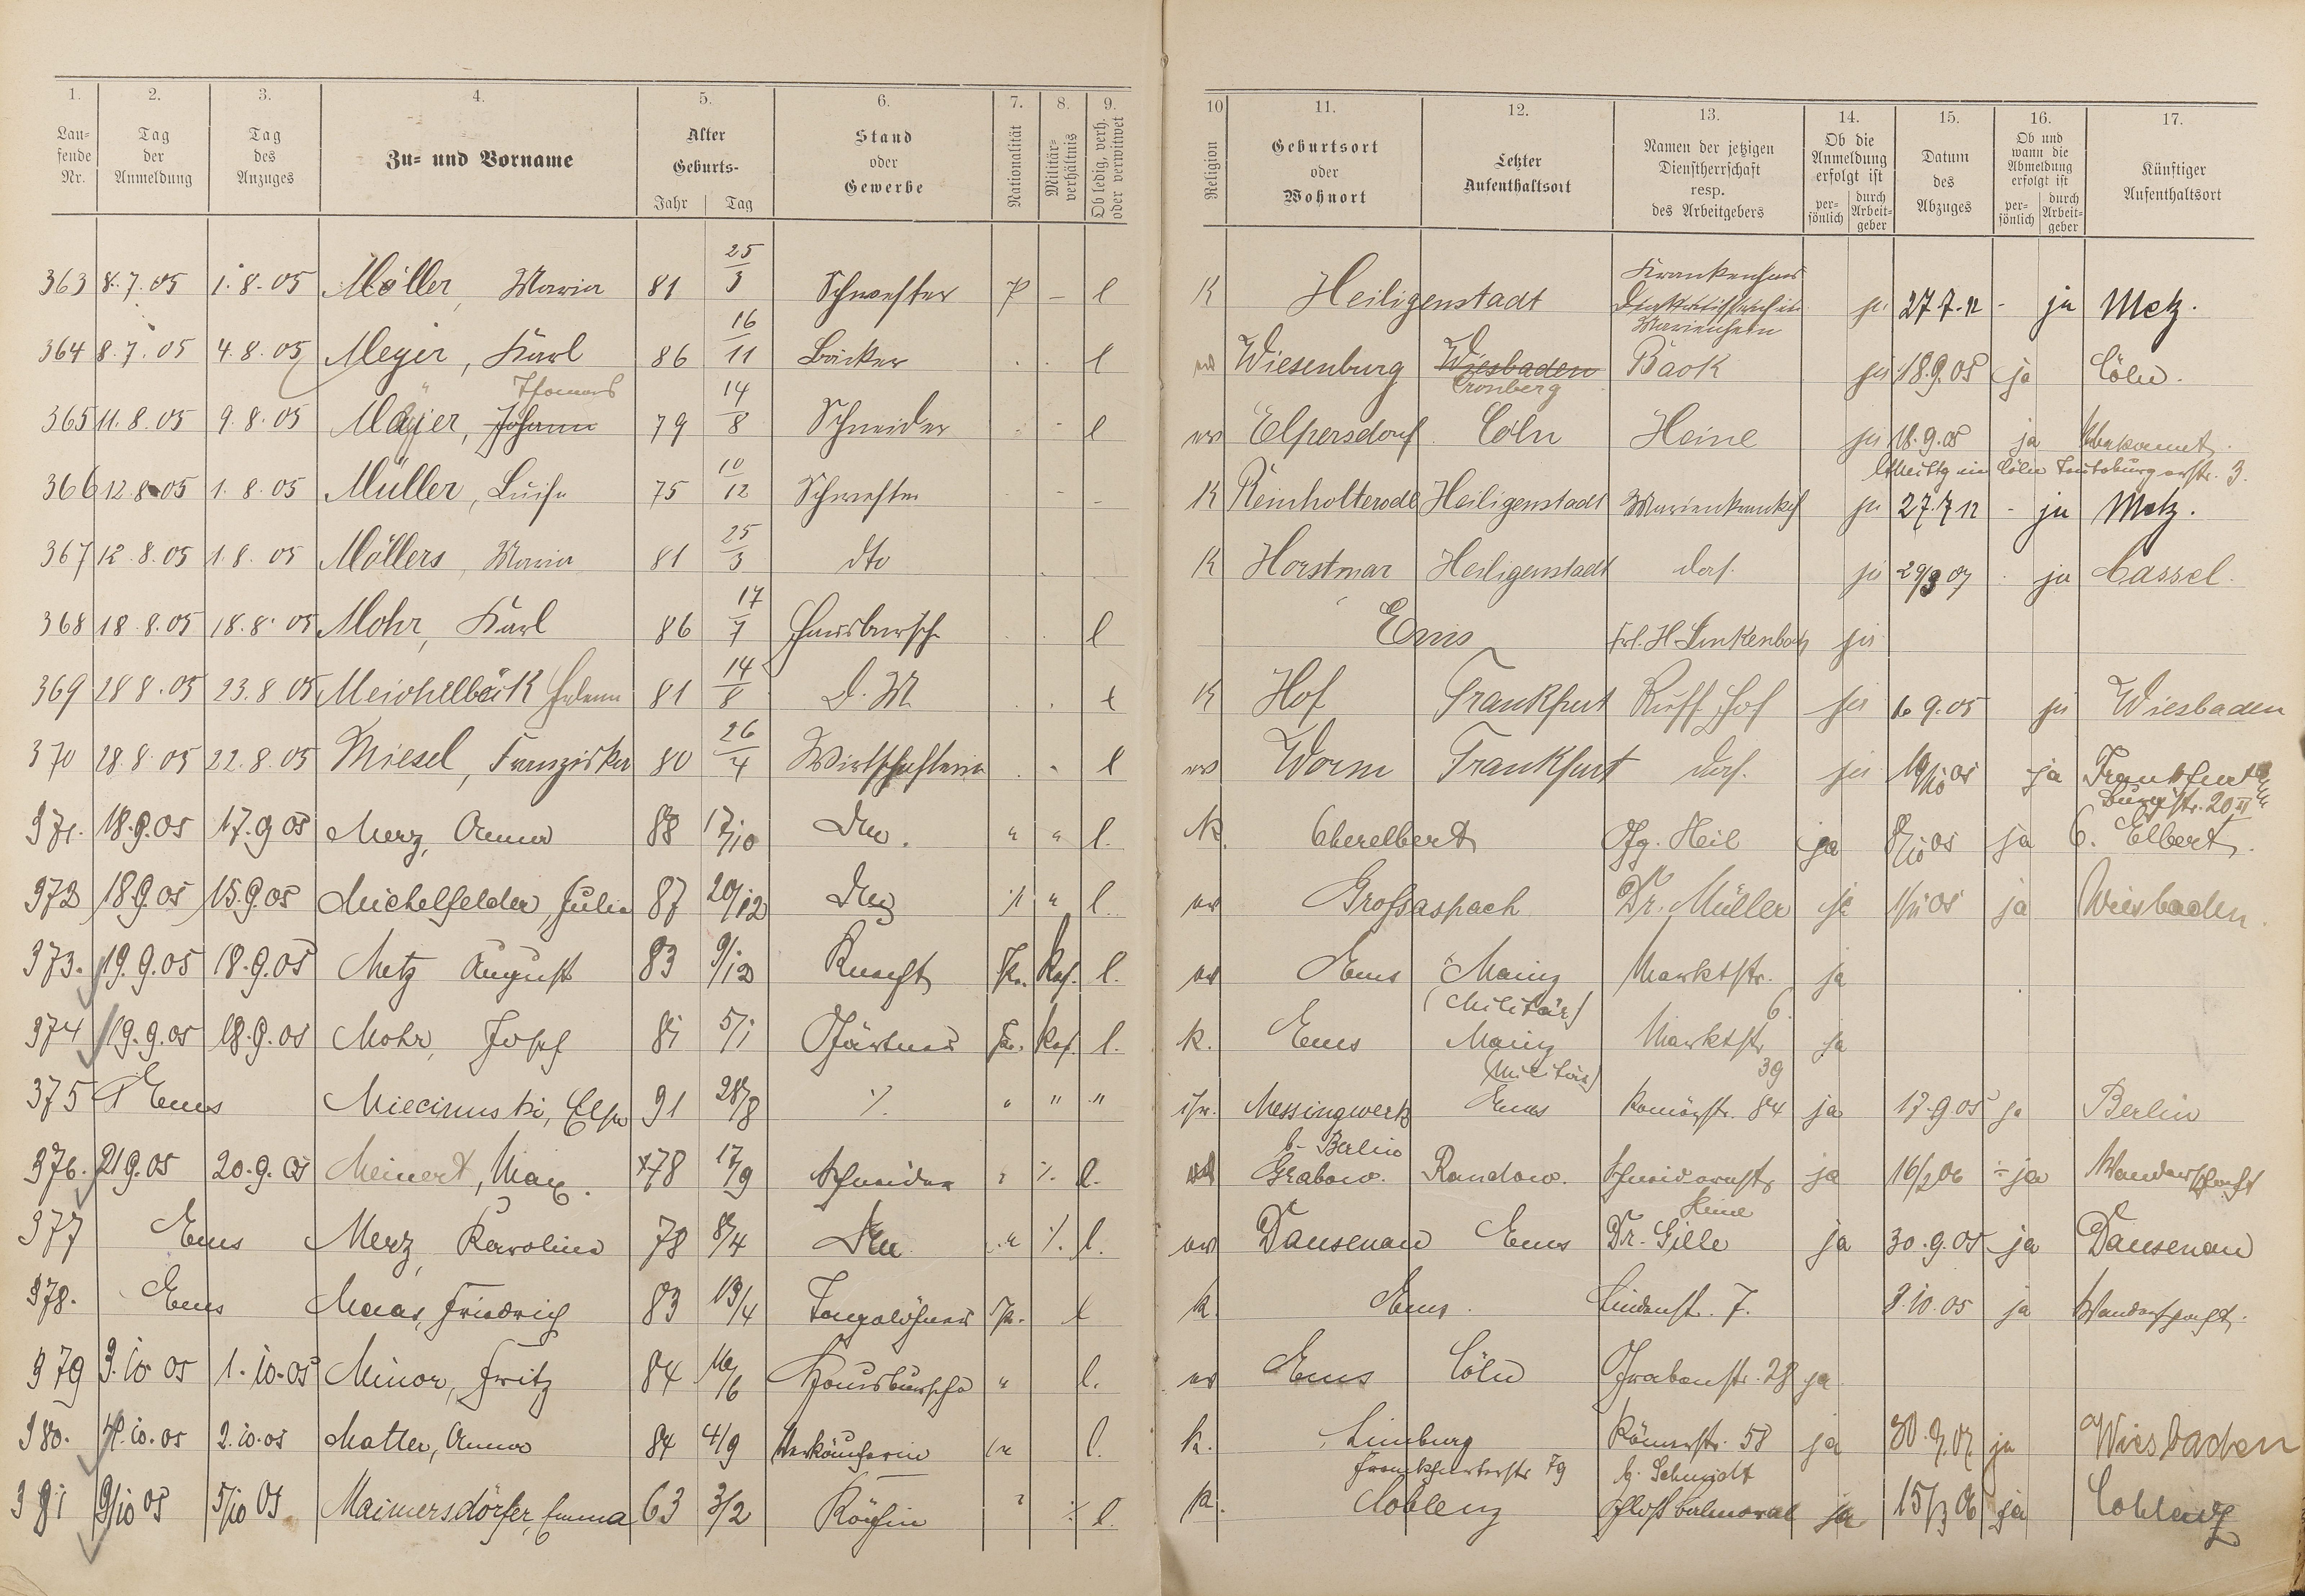 1. 2. 3. 4. 5. 6. 7. 8. 9. 10 11. 12. 13. 14. 15. 16. 17.
Laufende Nr. Tag der Anmeldung Tag des Anzuges Zu- und Vorname Alter Geburts- Jahr Tag Stand oder Gewerbe Nationalität Militär-verhältnis Ob ledig, verh. oder verwitwet Religion Geburtsort oder Wohnort Letzter Aufenthaltsort Namen der jetzigen Dienstherrschaft resp. des Arbeitgebers Ob die Anmeldung erfolgt ist per-sönlich durch Arbeit-geber Datum des Abzuges Ob und wann die Abmeldung erfolgt ist per-sönlich durch Arbeit-geber Künftiger Aufenthaltsort
363 8.7.05 1.8.05 Möller, Maria 81 25/3 Schwester p – l K Heiligenstadt Krankenhaus Marienheim ja 27.7.12 - ja Metz.
364 8.7.05 4.8.05 Meyer, Karl 86 16/11 Bäcker l Wiesenburg Wiesbaden Cronberg Back ja 18.9.05 ja Cöln.
365 11.8.05 9.8.05 Mayer, Johann Thomas 79 14/8 Schneider l ev Elpersdorf Cöln Heine ja 18.9.05 ja Unbekannt.
in Cöln Teutoburgerstr. 3.
366 12.8.05 1.8.05 Müller, Luise 75 10/12 Schwester K Reinholterode Heiligenstadt Marienkrankh ja 27.7.12 - ja Metz.
367 12.8.05 1.8.05 Möllers, Maria 81 25/3 dto K Horstmar Heiligenstadt das. ja 29/3 07 ja Cassel.
368 18.8.05 18.8.05 Mohr, Karl 86 17/7 Hausbursch l Ems Frl. H Linkenbach ja
369 28 8.05 23.8 05 Meichelböck Helene 81 14/8 D. M l K Hof Frankfurt Ruff Hof ja 16 9.05 ja Wiesbaden
370 28.8.05 22.8.05 Miesel, Franziska 80 26/4 Wirtschafterin l ev Worm Frankfurt das. ja 05 ja Frankfurt 20 II
371. 18.9.05 17.9 05 Merz, Anna 88 17/10 Dm. " " l. K. Oberelbert Gg. Heil ja 8/10 05 ja O. Elbert.
372 18.9.05 15.9.05 Michelfelder, Julie 87 20/12 Dm " l. ev Grossaspach Dr. Müller ja 1/11 05 ja Wiesbaden.
373. 19.9.05 18.9.05 Metz August 83 9/12 Knecht Pr. Res. l. ev Ems Mainz (Militär) Marktstr. 6. ja
374 19.9.05 18.9.05 Mohr, Josef 81 5/1 Gärtner Pr. Res. l. k. Ems Mainz (Militär) Marktstr 39 ja
375 Ems Miecinski, Elsa 91 28/8 ./. " " " isr. Messingwerk b. Berlin Ems Römerstr. 84 ja 17.9.05 ja Berlin
376. 21 9.05 20.9.05 Meinert, Max. 78 17/9 Schneider " ./. l. ev Grabow. Randow. Schneiderstr Heine ja 16/2 06 ja Wanderschaft
377 Ems Merz, Karoline 78 8/4 Dm " ./. l. ev Dausenau Ems Dr. Gille ja 30.9.05 ja Dausenau
378. Ems Maas, Friedrich 83 13/4 Tagelöhner Pr. l k. Ems. Lindenst. 7. 9.10.05 ja Wanderschaft.
379 3.10 05 1.10.05 Minor, Fritz 84 16/6 Hausbursche " l. ev Ems Cöln Grabenstr. 28 ja
380. 4.10.05 2.10.05 Matter, Anna 84 4/9 Verkäuferin l. k. Limburg Frankfurterstr 79 Römerstr. 58 b. Schmidt ja 30.9.07 ja Wiesbaden
381 9/10 05 5/10 05 Maimersdörfer, Emma 63 3/2 Köchin ./. l. k. Coblenz Schloß Balmoral ja 15/3 06 ja Coblenz